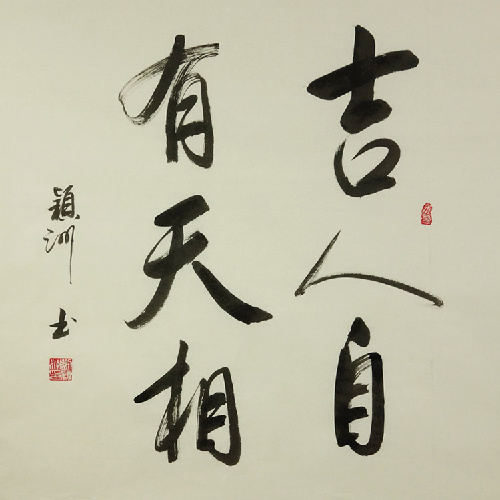 吉人自
有天相
穎洲书